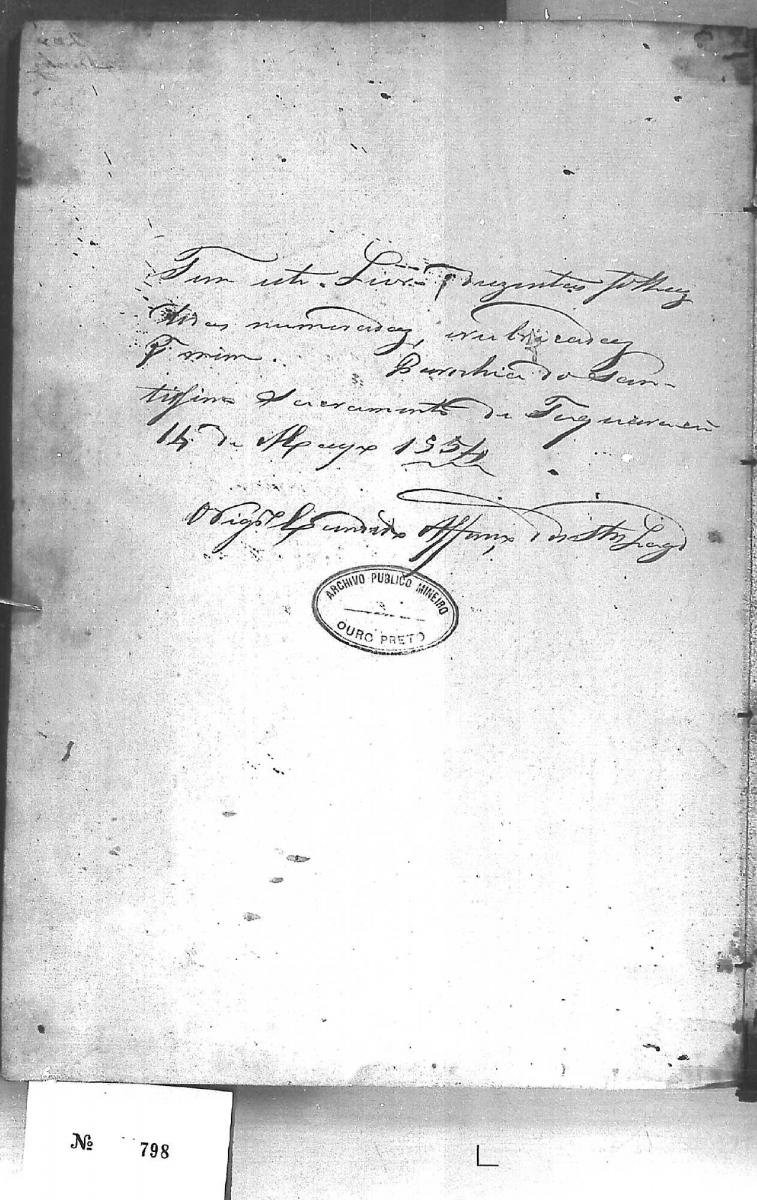 Tem este Livro duzentas folhas
todas numeradas, e rubricadas
por mim. Parochia do San-
tissimo Sacramento de Taquarassú
14 de Mayo 1854
O Vigr.º Affonço de
ARCHIVO PUBLICO MINEIRO
OURO PRETO
Nº 798